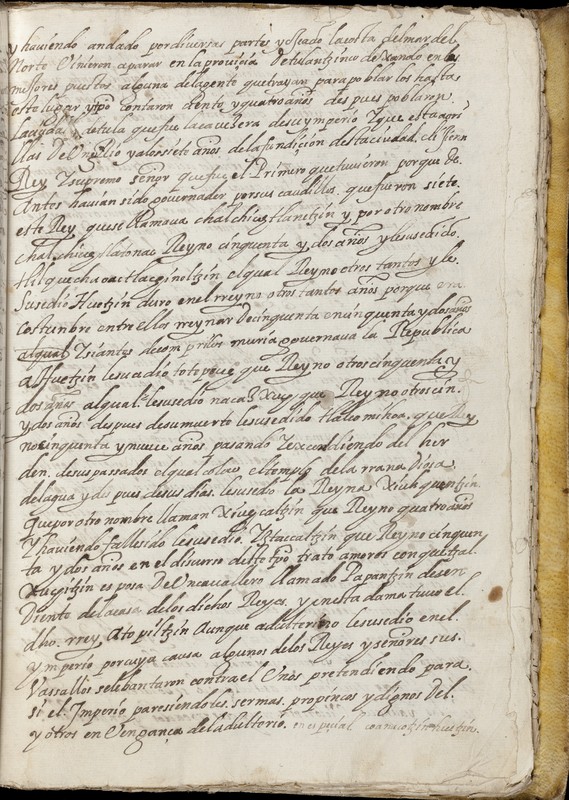 y haviendo andado por diversas partes y Rodeado la costa del mar del
Norte Vinieron a parar en la provinsia de tulantzinco dexando en los
mejores puestos alguna de la gente que trayan para poblar los hasta
este lugar y tpo contaron ciento y quatro años despues poblaron
la ciudad de tula que fue la cavesera de su ymperio y que esta a ori
llas del Rio y a los siete años de la fundiçion desta ciudad elijieron
Rey y supremo señor que fue el Primero que tuvieron porque de
Antes havian sido governados por sus caudillos que fueron siete
este Rey que se llamava chalchiuhtlanetzin y por otro nombre
chalchiuhtlatonac Reyno cinquenta y dos años y le susedio
tlilquechahuac tlachinoltzin el qual Reyno otros tantos y le
susedio Huetzin duro en el rreyno otros tantos años porque era
costunbre entre ellos rreynar de cinquenta en cinquenta y dos años
al qual y si antes de complirlos muria governava la Republica
a Huetzin le susedio totepeuc que Reyno otros cinquenta y
dos años al qual le susedio nacazxuch que Reyno otros cin
y dos años despues de su muerto le susedio tlalcomihoa que Rey
no cinquenta y nueve años pasando y excendiendo del her
den de sus passados el qual el templo de la rrana Diosa
del agua y despues de sus dias le susedio la Reyna Xiuhquentzin
que por otro nombre llaman Xiuhcaltzin que Reyno quatro años
y haviendo fallesido le susedio Yztaccaltzin que Reyno cinquen
ta y dos años en el discurso deste tpo trato amores con quetzal
xuchitzin esposa de Un cavallero llamado Papantzin desen
Diente de la casa de los dichos Reyes y en esta dama tuvo el
dho rrey A topiltzin Aunque adulterino le susedio en el
ymperio por cuya causa algunos de los Reyes y señores sus
Vassallos se lebantaron contra el Unos pretendiendo para
si el Imperio paresiendoles ser mas propincos y dignos del
y otros en Vengança del adulterio en espesial coanacotzin huetzin